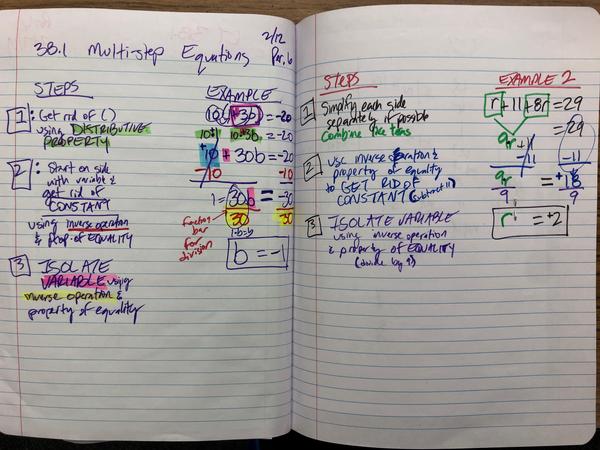 38.1 Multi-step Equations 2/12 Per. 6
STEPS
1 : Get rid of ()
using DISTRIBUTIVE
PROPERTY
2 : Start on side
with variable &
get rid of
CONSTANT
using inverse operation
& prop. of EQUALITY
3 ISOLATE
VARIABLE using
inverse operation &
property of equality
EXAMPLE
10(1+3b) = -20
10·1 + 10·3b = -20
+10 + 30b = -20
-10 -10
30b = -30
30 30
factor bar for division
b = -1
STEPS
1 Simplify each side
separately if possible
Combine like terms
2 use inverse operation &
property of equality
to GET RID OF
CONSTANT (subtract 11)
3 ISOLATE VARIABLE
using inverse operation
& property of EQUALITY
(divide by 9)
EXAMPLE 2
r + 11 + 8r = 29
9r + 11 = 29
-11 -11
9r = +18
9 9
r = +2